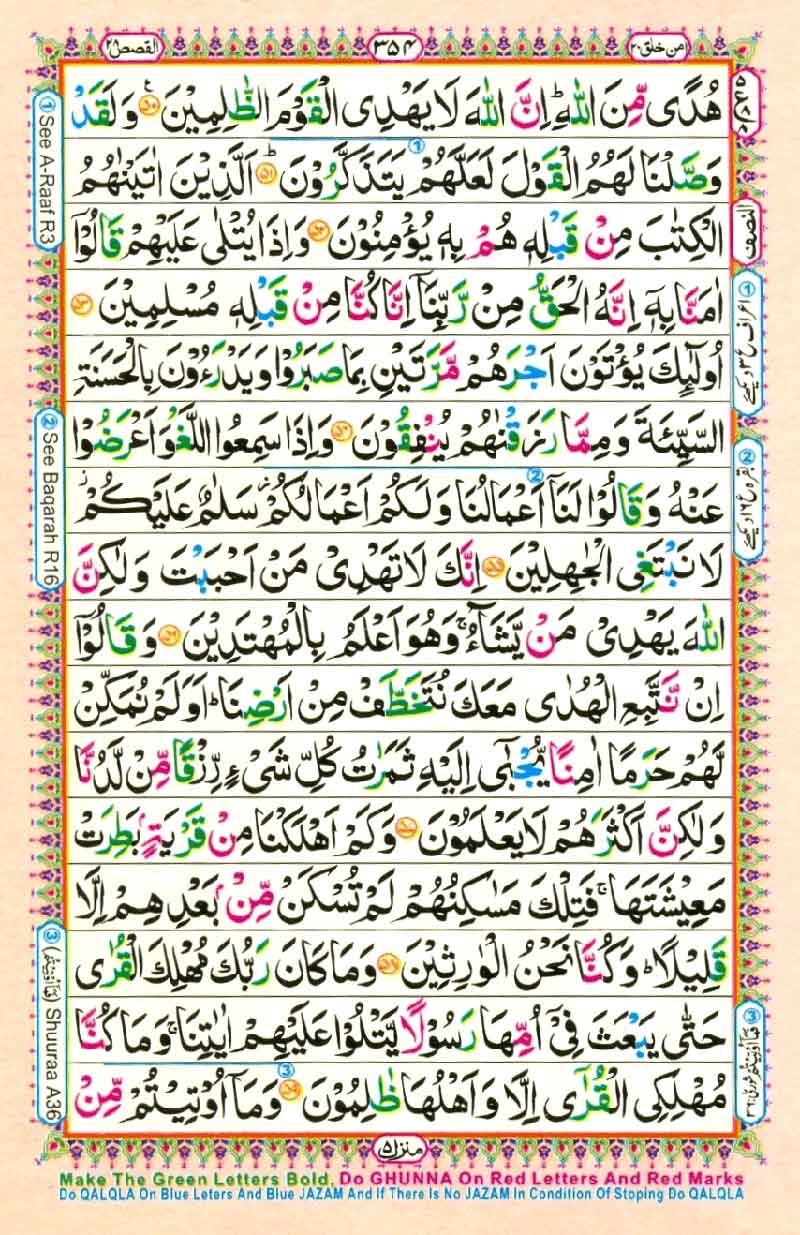 القصص ٢٨
٣٥٤
امن خلق ٢٠
هُدًى مِّنَ اللّٰهِ ؕ اِنَّ اللّٰهَ لَا یَهْدِی الْقَوْمَ الظّٰلِمِیْنَ ﴿۵۰﴾ وَ لَقَدْ
وَصَّلْنَا لَهُمُ الْقَوْلَ لَعَلَّهُمْ یَتَذَكَّرُوْنَ ﴿۵۱﴾ؕ اَلَّذِیْنَ اٰتَیْنٰهُمُ
الْكِتٰبَ مِنْ قَبْلِهٖ هُمْ بِهٖ یُؤْمِنُوْنَ ﴿۵۲﴾ وَ اِذَا یُتْلٰى عَلَیْهِمْ قَالُوْۤا
اٰمَنَّا بِهٖۤ اِنَّهُ الْحَقُّ مِنْ رَّبِّنَاۤ اِنَّا كُنَّا مِنْ قَبْلِهٖ مُسْلِمِیْنَ ﴿۵۳﴾
اُولٰٓئِكَ یُؤْتَوْنَ اَجْرَهُمْ مَّرَّتَیْنِ بِمَا صَبَرُوْا وَ یَدْرَءُوْنَ بِالْحَسَنَةِ
السَّیِّئَةَ وَ مِمَّا رَزَقْنٰهُمْ یُنْفِقُوْنَ ﴿۵۴﴾ وَ اِذَا سَمِعُوا اللَّغْوَ اَعْرَضُوْا
عَنْهُ وَ قَالُوْا لَنَاۤ اَعْمَالُنَا وَ لَكُمْ اَعْمَالُكُمْ ؗ سَلٰمٌ عَلَیْكُمْ ؗ
لَا نَبْتَغِی الْجٰهِلِیْنَ ﴿۵۵﴾ اِنَّكَ لَا تَهْدِیْ مَنْ اَحْبَبْتَ وَ لٰكِنَّ
اللّٰهَ یَهْدِیْ مَنْ یَّشَآءُ ۚ وَ هُوَ اَعْلَمُ بِالْمُهْتَدِیْنَ ﴿۵۶﴾ وَ قَالُوْۤا
اِنْ نَّتَّبِعِ الْهُدٰى مَعَكَ نُتَخَطَّفْ مِنْ اَرْضِنَا ؕ اَوَ لَمْ نُمَكِّنْ
لَّهُمْ حَرَمًا اٰمِنًا یُّجْبٰۤى اِلَیْهِ ثَمَرٰتُ كُلِّ شَیْءٍ رِّزْقًا مِّنْ لَّدُنَّا
وَ لٰكِنَّ اَكْثَرَهُمْ لَا یَعْلَمُوْنَ ﴿۵۷﴾ وَ كَمْ اَهْلَكْنَا مِنْ قَرْیَةٍۭ بَطِرَتْ
مَعِیْشَتَهَا ۚ فَتِلْكَ مَسٰكِنُهُمْ لَمْ تُسْكَنْ مِّنْۢ بَعْدِهِمْ اِلَّا
قَلِیْلًا ؕ وَ كُنَّا نَحْنُ الْوٰرِثِیْنَ ﴿۵۸﴾ وَ مَا كَانَ رَبُّكَ مُهْلِكَ الْقُرٰى
حَتّٰى یَبْعَثَ فِیْۤ اُمِّهَا رَسُوْلًا یَّتْلُوْا عَلَیْهِمْ اٰیٰتِنَا ۚ وَ مَا كُنَّا
مُهْلِكِی الْقُرٰۤى اِلَّا وَ اَهْلُهَا ظٰلِمُوْنَ ﴿۵۹﴾ وَ مَاۤ اُوْتِیْتُمْ مِّنْ
منزل ۵
① See A-Raaf R3
② See Baqarah R16
③ Shuuraa A36
النصف
Make The Green Letters Bold, Do GHUNNA On Red Letters And Red Marks
Do QALQLA On Blue Leters And Blue JAZAM And If There Is No JAZAM In Condition Of Stoping Do QALQLA